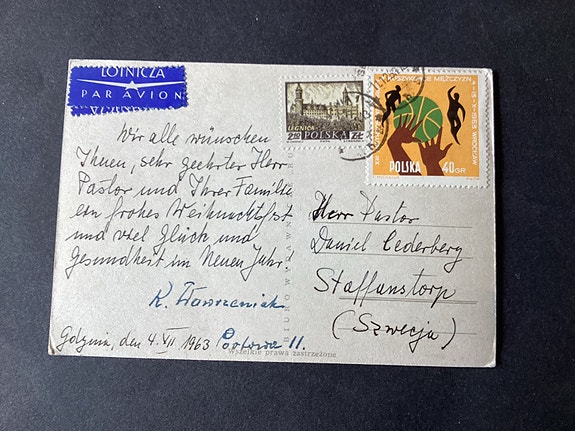 LOTNICZA
PAR AVION
LEGNICA
POLSKA
MĘŻCZYZN
WROCŁAW
POLSKA 40 GR
Wir alle wünschen
Ihnen, sehr geehrter Herr
Pastor und Ihrer Familie
ein frohes Weihnachtsfest
und viel Glück und
Gesundheit im Neuen Jahr
K. Wawrzeniak
Gdynia, den 4. VII 1963
Herr Pastor
Daniel Cederberg
Staffanstorp
(Szwecja)
wszelkie prawa zastrzeżone